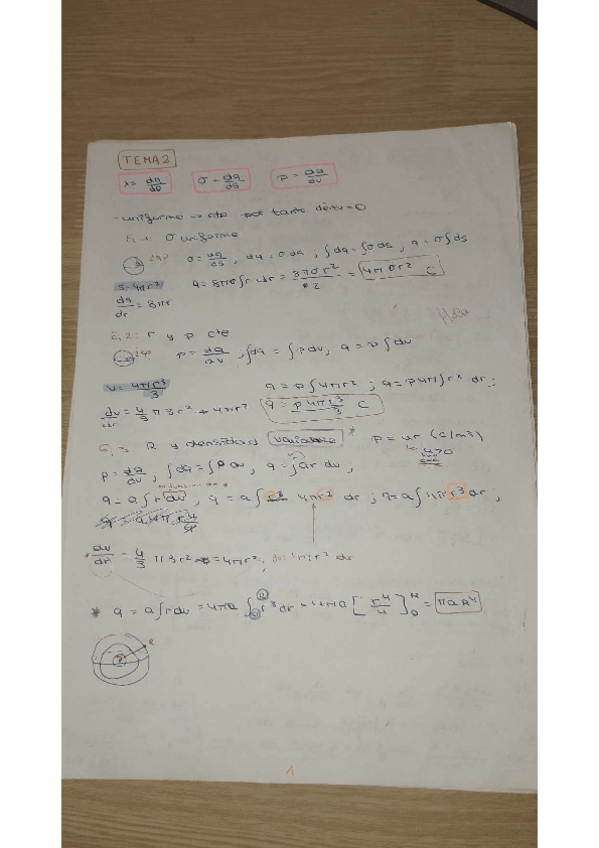 TEMA 2
λ = dq/dl   σ = dq/ds   ρ = dq/dv
- uniforme → cte por tanto deriv = 0
Ej 1: σ uniforme
σ = dq/ds, dq = σ ds, ∫dq = ∫σ ds, q = σ∫ds
S = 4πr²
q = 8πσ∫r dr = 8πσr²/2 = 4πσr² C
ds/dr = 8πr
Ej 2: r y ρ cte
ρ = dq/dv, ∫dq = ∫ρ dv, q = ρ∫dv
V = 4πr³/3
q = ρ∫4πr²; q = ρ4π∫r² dr;
dv/dr = 4/3 π 3r² → 4πr²
q = ρ4πr³/3 C
Ej 3: R y densidad variable *   ρ = ar (C/m³)
a>0
ρ = dq/dv, ∫dq = ∫ρ dv, q = ∫ar dv,
q = a∫r dv, q = a∫r 4πr² dr; q = a∫4πr³ dr,
* dv/dr = 4/3 π3r² = 4πr²; dv = 4πr² dr
* q = a∫r dv = 4πa∫r³ dr = 4πa [r⁴/4]₀ᴿ = πaR⁴
R
1